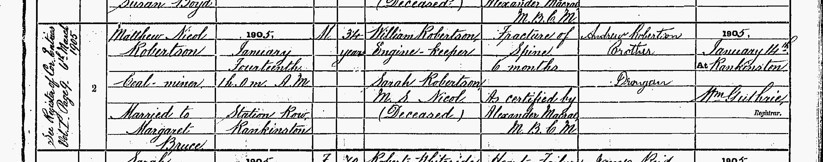 Susan Boyd
(Deceased)
Alexander Macrae
M.B.C.M
See Register of Cor. Entries
Vol. I. Page 9. March
1905
2
Matthew Nicol
Robertson
Coal-miner
Married to
Margaret
Bruce
1905.
January
Fourteenth
1 h. 0 m. A.M
Station Row,
Rankinston
M.
34
years
William Robertson
Engine-keeper
Sarah Robertson
M. S. Nicol
(Deceased)
Fracture of
Spine
6 months
As certified by
Alexander Macrae
M.B.C.M
Andrew Robertson
Brother
Drongan
1905.
January 14th
At Rankinston
Wm Guthrie
Registrar.
Sarah
1905
F
James Reid